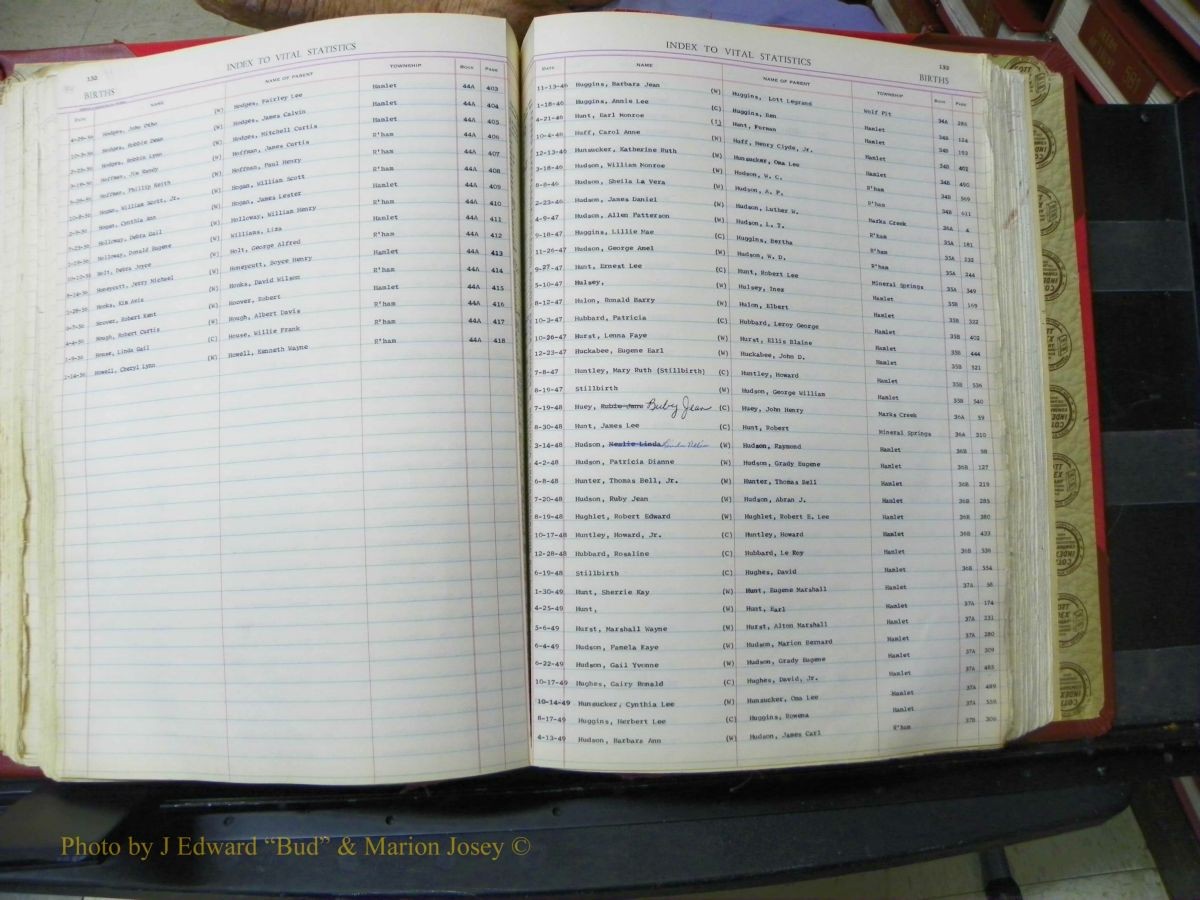 132
INDEX TO VITAL STATISTICS
BIRTHS
DATE NAME NAME OF PARENT TOWNSHIP BOOK PAGE
Hodges, John Otho (W) Hodges, Fairley Lee Hamlet 44A 403
Hodges, Robbie Dean (W) Hodges, James Calvin Hamlet 44A 404
Hodges, Robbin Lynn (W) Hodges, Mitchell Curtis Hamlet 44A 405
Hoffman, Jim Randy (W) Hoffman, James Curtis R'ham 44A 406
Hoffman, Phillip Keith (W) Hoffman, Paul Henry R'ham 44A 407
Hogan, William Scott, Jr. (W) Hogan, William Scott R'ham 44A 408
Hogan, Cynthia Ann (W) Hogan, James Lester Hamlet 44A 409
Holloway, Debra Gail (W) Holloway, William Henry R'ham 44A 410
Holloway, Donald Eugene (W) Williams, Liza Hamlet 44A 411
Holt, Debra Joyce (W) Holt, George Alfred R'ham 44A 412
Honeycutt, Jerry Michael (W) Honeycutt, Boyce Henry Hamlet 44A 413
Hooks, Kim Avis (W) Hooks, David Wilson R'ham 44A 414
Hoover, Robert Kent (W) Hoover, Robert Hamlet 44A 415
Hough, Robert Curtis (W) Hough, Albert Davis R'ham 44A 416
House, Linda Gail (C) House, Willie Frank R'ham 44A 417
Howell, Cheryl Lynn (W) Howell, Kenneth Wayne R'ham 44A 418
INDEX TO VITAL STATISTICS
132
BIRTHS
DATE NAME NAME OF PARENT TOWNSHIP BOOK PAGE
11-13-46 Huggins, Barbara Jean (W) Huggins, Lott Legrand Wolf Pit 34A 286
1-18-46 Huggins, Annie Lee (C) Huggins, Ben Hamlet 34B 124
4-21-46 Hunt, Earl Monroe (I) Hunt, Furman Hamlet 34B 192
10-4-46 Huff, Carol Anne (W) Huff, Henry Clyde, Jr. Hamlet 34B 402
12-13-46 Hunsucker, Katherine Ruth (W) Hunsucker, Oma Lee Hamlet 34B 490
3-18-46 Hudson, William Monroe (W) Hudson, W. C. R'ham 34B 569
8-8-46 Hudson, Sheila La Vera (W) Hudson, A. P. R'ham 34B 611
2-23-46 Hudson, James Daniel (W) Hudson, Luther W. Marks Creek 36A 4
4-9-47 Hudson, Allen Patterson (W) Hudson, L. T. R'ham 35A 181
9-18-47 Huggins, Lillie Mae (C) Huggins, Bertha R'ham 35A 232
11-26-47 Hudson, George Amel (W) Hudson, W. D. R'ham 35A 244
9-27-47 Hunt, Ernest Lee (C) Hunt, Robert Lee Mineral Springs 35A 349
5-10-47 Hulsey, (W) Hulsey, Inez Hamlet 35B 169
8-12-47 Hulon, Ronald Barry (W) Hulon, Elbert Hamlet 35B 322
10-3-47 Hubbard, Patricia (C) Hubbard, Leroy George Hamlet 35B 402
10-26-47 Hurst, Lenna Faye (W) Hurst, Ellis Blaine Hamlet 35B 444
12-23-47 Huckabee, Eugene Earl (W) Huckabee, John D. Hamlet 35B 521
7-8-47 Huntley, Mary Ruth (Stillbirth) (C) Huntley, Howard Hamlet 35B 536
8-19-47 Stillbirth (W) Hudson, George William Hamlet 35B 540
7-19-48 Huey, Rubie Jane Buby Jean (C) Huey, John Henry Marks Creek 36A 59
8-30-48 Hunt, James Lee (C) Hunt, Robert Mineral Springs 36A 310
3-14-48 Hudson, Neslie Linda (W) Hudson, Raymond Hamlet 36B 98
4-2-48 Hudson, Patricia Dianne (W) Hudson, Grady Eugene Hamlet 36B 127
6-8-48 Hunter, Thomas Bell, Jr. (W) Hunter, Thomas Bell Hamlet 36B 219
7-20-48 Hudson, Ruby Jean (W) Hudson, Abran J. Hamlet 36B 285
8-19-48 Hughlet, Robert Edward (W) Hughlet, Robert E. Lee Hamlet 36B 380
10-17-48 Huntley, Howard, Jr. (C) Huntley, Howard Hamlet 36B 433
12-28-48 Hubbard, Rosaline (C) Hubbard, Le Roy Hamlet 36B 536
6-19-48 Stillbirth (C) Hughes, David Hamlet 36B 554
1-30-49 Hunt, Sherrie Kay (W) Hunt, Eugene Marshall Hamlet 37A 58
4-25-49 Hunt, (W) Hunt, Earl Hamlet 37A 174
5-6-49 Hurst, Marshall Wayne (W) Hurst, Alton Marshall Hamlet 37A 231
6-4-49 Hudson, Pamela Kaye (W) Hudson, Marion Bernard Hamlet 37A 280
6-22-49 Hudson, Gail Yvonne (W) Hudson, Grady Eugene Hamlet 37A 309
10-17-49 Hughes, Gairy Ronald (C) Hughes, David, Jr. Hamlet 37A 485
10-14-49 Hunsucker, Cynthia Lee (W) Hunsucker, Oma Lee Hamlet 37A 489
8-17-49 Huggins, Herbert Lee (C) Huggins, Rowena Hamlet 37A 558
4-13-49 Hudson, Barbara Ann (W) Hudson, James Carl R'ham 37B 306
Photo by J Edward “Bud” & Marion Josey ©